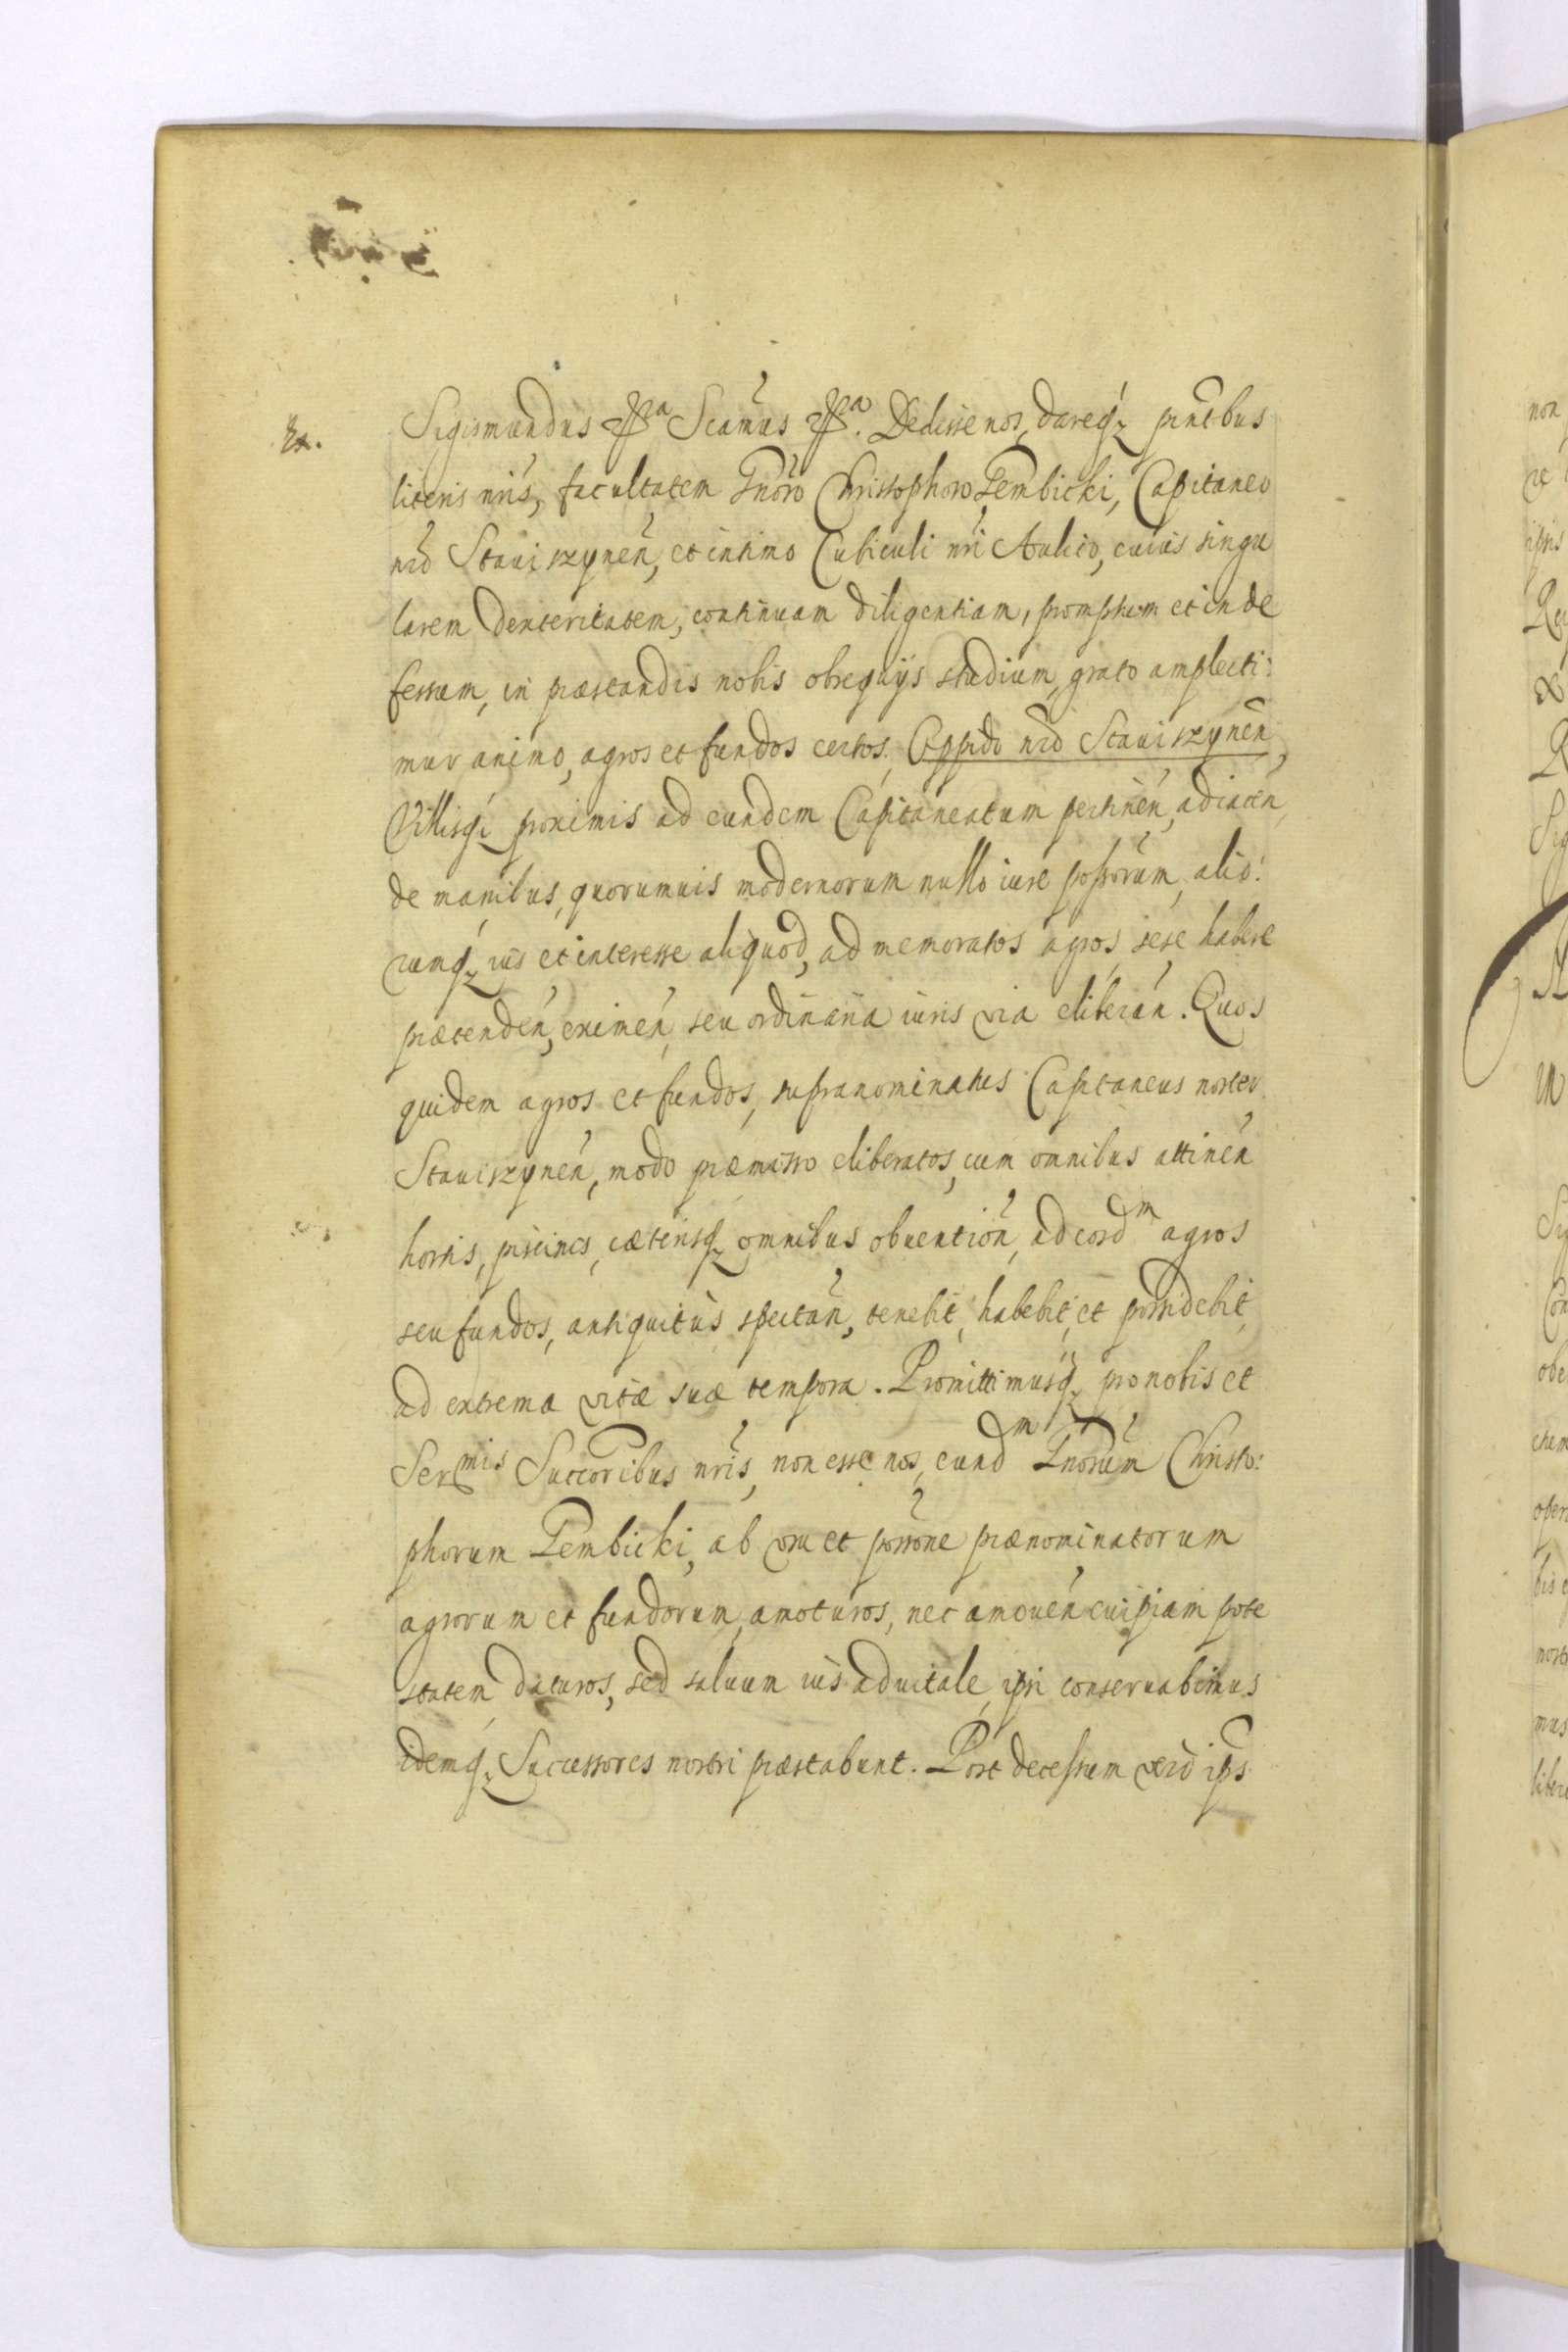 Ex.
Sigismundus etca Scamus etca. Dedisse nos, dareq3 pntbus
literis nris, facultatem Gnoro Christophoro Gembicki, Capitaneo
nro Stauiszynen, et intimo Cubiculi nri Aulico, cuius singu
larem dexteritatem, continuam diligentiam, promptum et inde
fessum, in præstandis nobis obsequijs studium, grato amplecti:
mur animo, agros et fundos certos, Oppido nro Stauiszynen,
Villisq3 proximis ad eundem Capitaneatum pertinen, adiacen,
de manibus, quorumuis modernorum nullo iure possorum, alio:
rumq3 ius et interesse aliquod, ad memoratos agros, sese habere
prætenden, eximen, seu ordinaria iuris via eliberan. Quos
quidem agros et fundos, supranominatus Capitaneus noster
Stauiszynen, modo præmisso eliberatos, cum omnibus attinen
hortis, piscinis, cæterisq3 omnibus obuention, ad eosdm agros
seu fundos, antiquitus spectan, tenebit, habebit, et possidebit,
ad extrema vitæ suæ tempora. Promittimusq3 pro nobis et
Sermis Succoribus nris, non esse nos, eundm Gnorum Christo:
phorum Gembicki, ab usu et possone prænominatorum
agrorum et fundorum, amoturos, nec amouen cuipiam pote
statem daturos, sed saluum ius aduitale, ipsi conseruabimus
idemq3 Successores nostri præstabunt. Post decessum vero ips